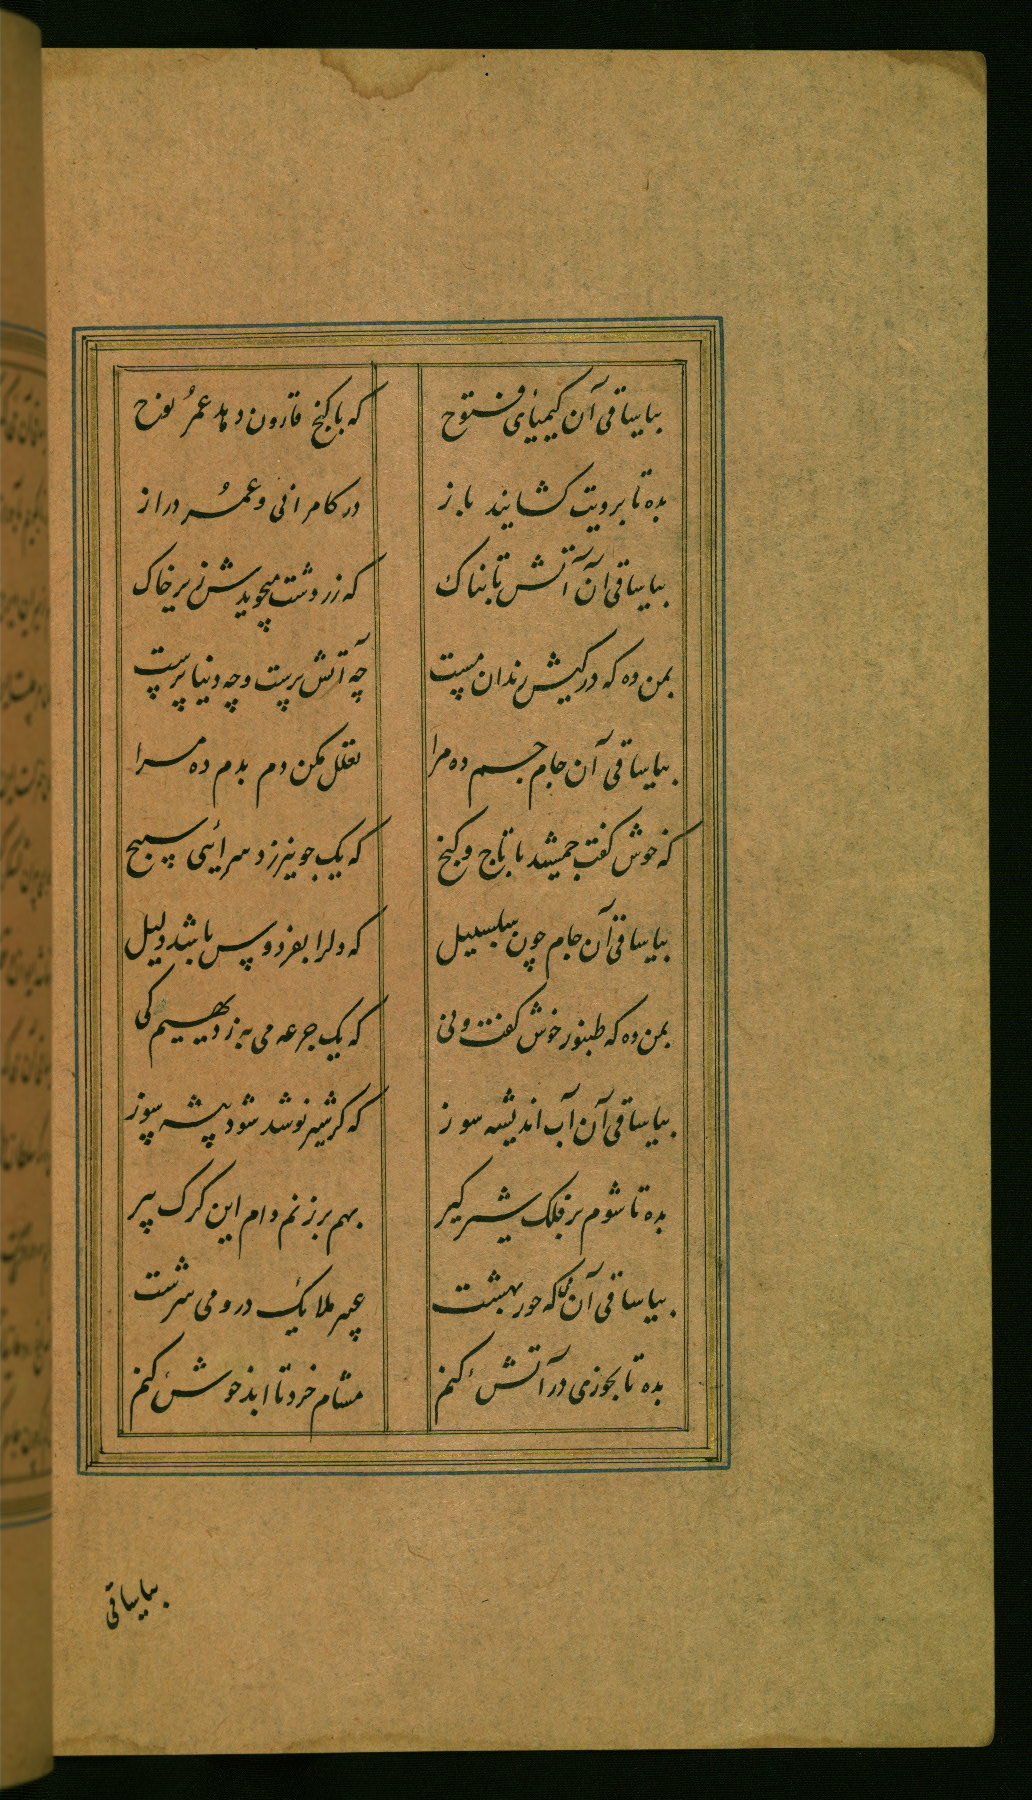 بیا ساقی آن کیمیای فتوح که با گنج قارون دهد عمر نوح
بده تا برویت کشایند باز در کامرانی و عمر دراز
بیا ساقی آن آتش تابناک که زردشت میجویدش زیر خاک
بمن ده که در کیش رندان مست چه آتش پرست و چه دنیا پرست
بیا ساقی آن جام جم ده مرا تعلل مکن دم بدم ده مرا
که خوش گفت جمشید با تاج و گنج که یک جو نیرزد سرائی سپنج
بیا ساقی آن جام چون سلسبیل که دلرا بفردوس باشد دلیل
بمن ده که طنبور خوش گفت و نی که یک جرعه می به ز دیهیم کی
بیا ساقی آن آب اندیشه سوز که گر شیر نوشد شود بیشه سوز
بده تا شوم بر فلک شیر گیر بهم بر زنم دام این گرگ پیر
بیا ساقی آن می که حور بهشت عبیر ملایک درو می سرشت
بده تا بخوری در آتش کنم مشام خرد تا ابد خوش کنم
بیا ساقی